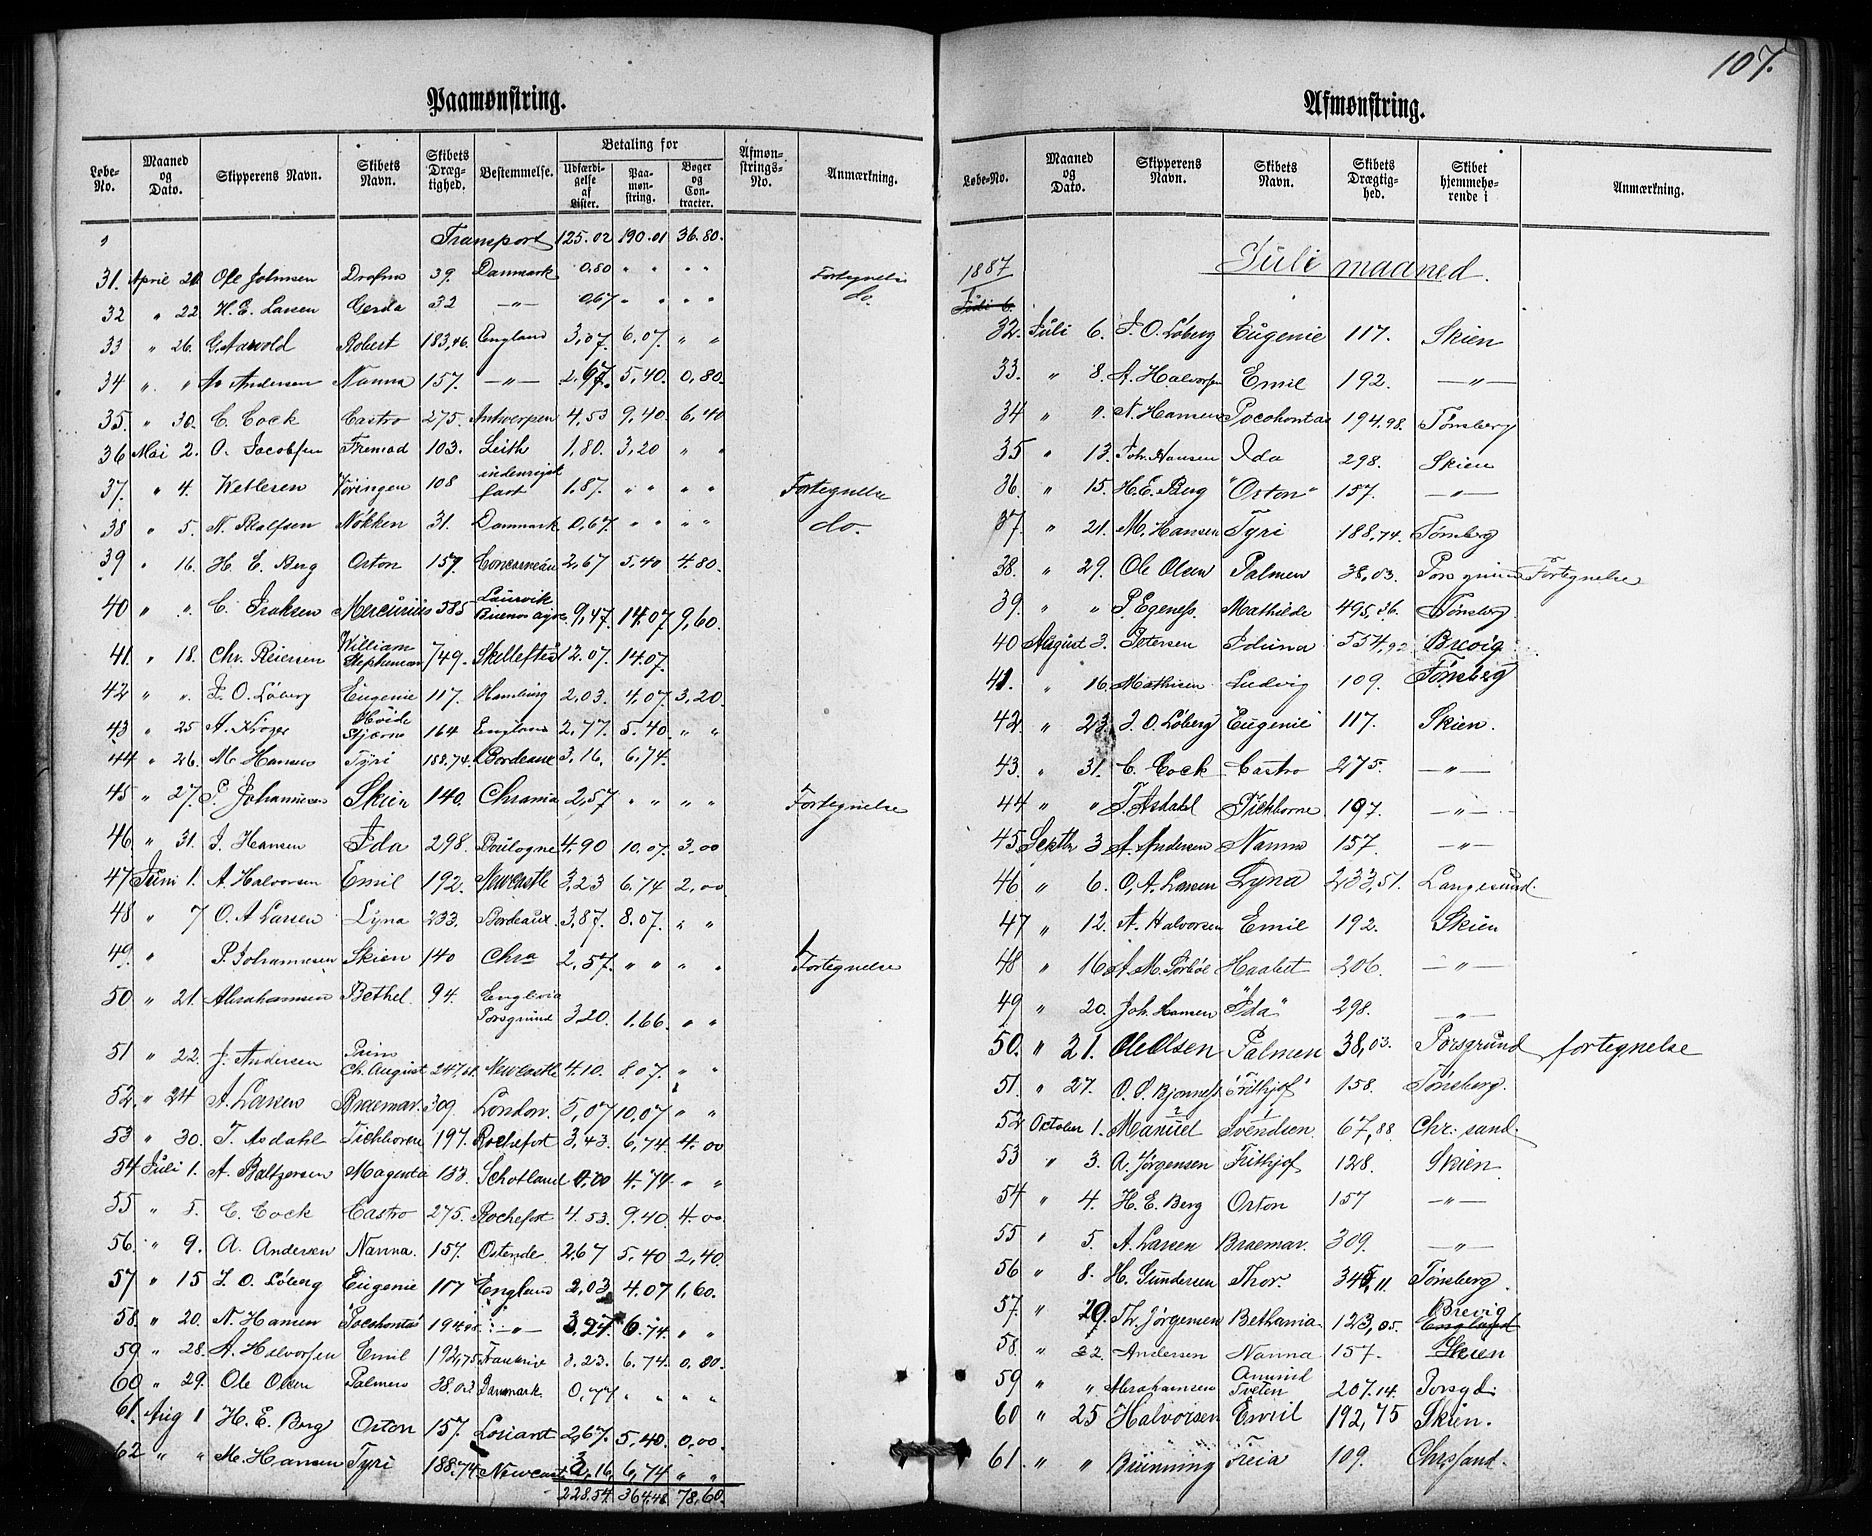 107.
Paamønstring.
Løbe-No. Maaned og Dato. Skipperens Navn. Skibets Navn. Skibets Drægtighed. Bestemmelse. Betaling for Udfærdigelse af Lister. Paamønstring. Bøger og Contracter. Afmønstrings-No. Anmærkning.
" Transport 125.02 190.01 36.80.
31. April 20. Ole Johnsen Drofna 39. Danmark 0,80 " " " " Fortegnelse
32 " 22 H. E. Larsen Gerda 32 —"— 0,67 " " " " do.
33 " 26. G. Aarvold Robert 183,46. England 3,07. 6,07. " "
34 " " A. Andersen Nanna 157. —"— 2,67. 5,40. 0,80.
35. " 30. C. Cock Castro 275. Antwerpen 4,53 9,40. 6,40
36 Mai 2. O. Jacobsen Fremad 103. Leith 1,80. 3,20 " "
37. " 4. Wetlesen Køringen 108 indenrigsk fart 1,87. " " " " Fortegnelse
38 " 5. N. Rolfsen Nøkken 31. Danmark 0,67. " " " " do.
39 " 16. H. E. Berg Orton 157. Concarneau 2,67 5,40 4.80.
40 " ". C. Isaksen Mercurius 385 Laurvik Buenos Ayres 9,47. 14.07 9,60.
41. " 18. Chr. Reiersen William Stephenson 749. Skellefteå 12.07. 14.07.
42 " ". J. O. Løberg Eugenie 117. Hamburg 2,03. 4,07. 3,20
43 " 25 A. Krøger Hvide Stjærne 164 England 2,77. 5.40 " "
44 " 26. M. Hansen Tyri 188.74. Bordeaux 3,16. 6,74.
45 " 27. P. Johannesen Skien 140. Chrania 2,57 " " " " Fortegnelse
46. " 31. J. Hansen Ida 298. Boulogne 4.90 10.07. 3,00
47 Juni 1. A. Halvorsen Emil 192. Newcastle 3,23 6,74 2,00
48 " 7 O. A. Larsen Lyna 233. Bordeaux. 3,87. 8.07. " "
49. " P. Johannesen Skien 140 Chra 2,57. " " " " Fortegnelse
50 " 21. Abrahamsen Bethel. 94. Engl. via Porsgrund 3,20. 1,66. " "
51 " 22. J. Andersen Prins Ch. August 247,61. Newcastle 4.10. 8.07. " "
52 " 24 A. Larsen Braemar. 309. London. 5,07 10,07 " "
53 " 30. T. Asdahl Tichborne 197. Rochefort 3,43. 6,74 4.00
54 Juli 1. A. Baltzersen Magenta 133. Schotland 0,00 4.74 " "
55 " 5. C. Cock Castro 275. Rochefort 4.53. 9.40. 4.00
56. " 9. A. Andersen Nanna. 157. Ostende 2,67 5,40 2,40
57 " 15 J. O. Løberg Eugenie 117 England 2,03 4.07 1,60.
58. " 20. N. Hansen Pocohontas 194,98 —"— 3,27. 6.74 " "
59 " 28. A. Halvorsen Emil 192,75 Frankrige 3.23. 6.74 0,80
60 " 29. Ole Olsen Palmen 38.03 Danmark 0,77 " " "
61. Aug 1 H. E. Berg Orton 157. Loriant 2,67. 5,40. 0,00.
62 " " M. Hansen Tyri 188.74 Newcast 3,16. 6,74 " "
228.54. 364.48 78,60.
Afmønstring.
Løbe-No. Maaned og Dato. Skipperens Navn. Skibets Navn. Skibets Drægtighed. Skibet hjemmehørende i Anmærkning.
1887 Juli maaned.
Juli 6.
32. Juli 6. J. O. Løberg Eugenie 117. Skien
33. " 8. A. Halvorsen Emil 192. —"—
34 " ". N. Hansen Pocohontas 194.98. Tønsberg
35 " 13. Joh. Hansen Ida 298. Skien
36. " 15. H. E. Berg "Orton" 157. —"—
37. " 21. M. Hansen Tyri 188,74. Tønsberg
38. " 29. Ole Olsen Palmen 38,03. Porsgrund Fortegnelse
39. " " P. Egeness. Mathilde 495,36. Tønsberg.
40 August 3. Petersen Iduna 554,92 Brevig
41. " 16. Mathisen Ludvig 109. Tønsberg
42. " 23. J. O. Løberg "Eugenie" 117. Skien.
43. " 31. C. Cock Castro 275. —"—
44 " " T. Asdahl Tichborne 197. —"—
45 Septbr 3 A. Andersen Nanna 157. —"—
46 " 6. O. A. Larsen Lyna 233,51. Langesund.
47 " 12. A. Halvorsen Emil 192. Skien
48 " 16 A. M. Sørbøe Haabet 206. —"—
49 " 20. Joh. Hansen "Ida" 298. —"—
50. " 21. Ole Olsen Palmen 38,03. Porsgrund fortegnelse
51 " 27. O. S. Bjonness "Frithjof" 158. Tønsberg.
52 October 1. Manuel Svendsen 67,88 Chr. sand.
53 " 3. A. Jørgensen Frithjof 128. Skien
54 " 4. H. E. Berg Orton 157 —"—
55 " 5. A. Larsen Braemar. 309. —"—
56 " 8. H. Gundersen Thor. 345,11. Tønsberg.
57. " 29. Th. Jørgensen Bethania 123,05. Brevig England
58. " 22. Andersen Nanna 157. Skien
59 " " Abrahamsen Amund Tveten 207.14. Porsgd.
60 " 25 Halvorsen Emil 192,75 Skien.
61. " " Brünning Freia 109. Chrssand.